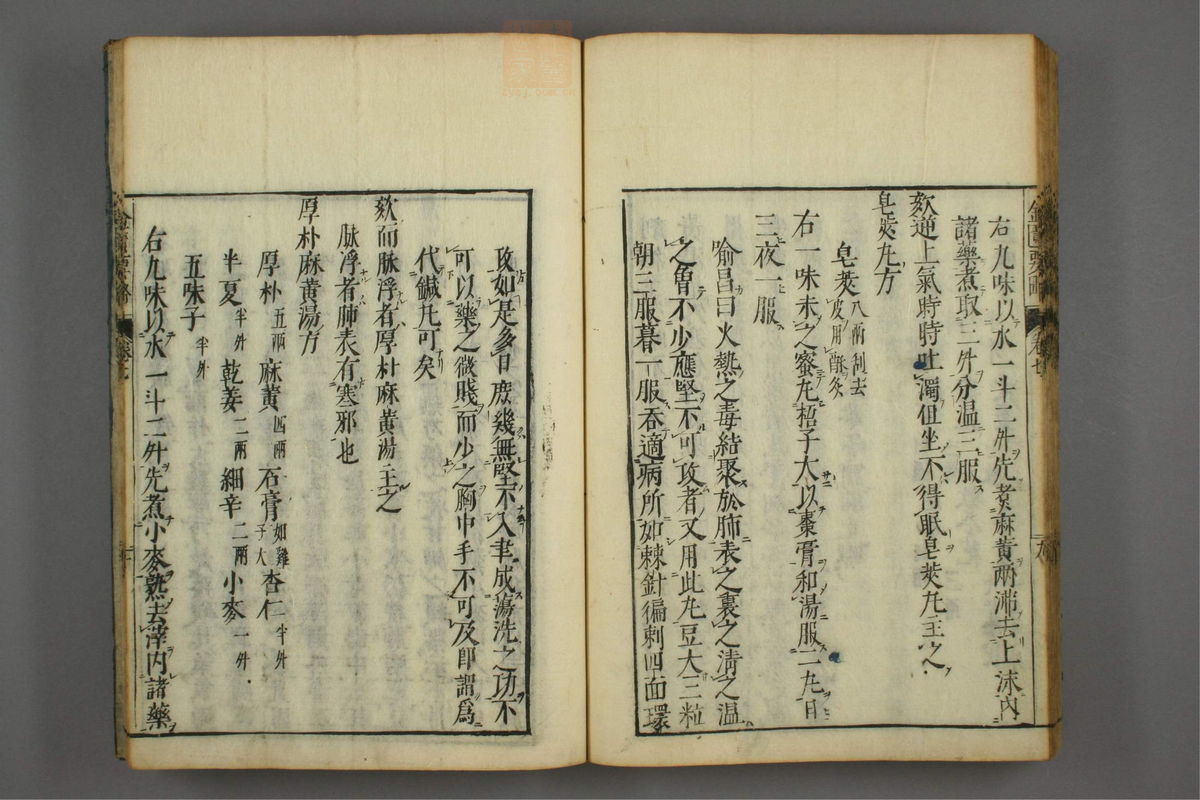 右九味以水一斗二升先煮麻黄兩沸去上沫內
諸藥煮取三升分温三服
欬逆上氣時時吐濁但坐不得眠皂莢丸主之
皂莢丸方
皂莢八兩刮去皮用酥炙
右一味末之蜜丸梧子大以棗膏和湯服三丸日
三夜一服
喻昌曰火熱之毒結聚於肺表之裏之清之温
之曾不少應堅不可攻者又用此丸豆大三粒
朝三服暮一服吞適病所如棘針徧刺四面環
攻如是多日庶幾無堅不入聿成蕩洗之功不
可以藥之微賤而少之胸中手不可及卽謂爲
代鍼丸可矣
欬而脉浮者厚朴麻黄湯主之
脉浮者肺表有寒邪也
厚朴麻黄湯方
厚朴五兩 麻黄四兩 石膏如雞子大 杏仁半升
半夏半升 乾姜二兩 細辛二兩 小麥一升
五味子半升
右九味以水一斗二升先煮小麥熟去滓内諸藥